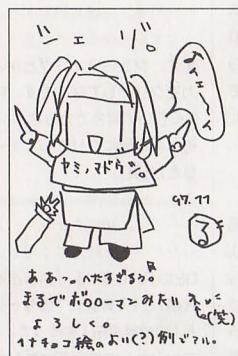 シェゾ。
イェーイ
ヤミノマドウシ。
97.11
る
ああっ。へたすぎるっ。
まるでボ○○ーマンみたいネ
(笑)
よろしく。
ヘナチョコ絵のよい(?)例でマル。